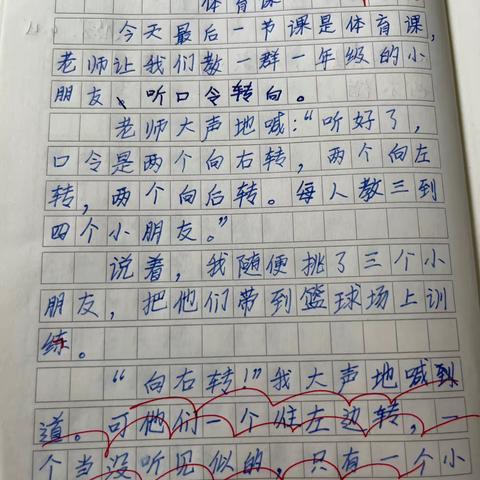 体育课
今天最后一节课是体育课,
老师让我们教一群一年级的小
朋友、听口令转向。
老师大声地喊:“听好了,
口令是两个向右转,两个向左
转,两个向后转。每人教三到
四个小朋友。”
说着,我随便挑了三个小
朋友,把他们带到篮球场上训
练。
“向右转!”我大声地喊到
道。可他们一个往左边转,一
个当没听见似的,只有一个小